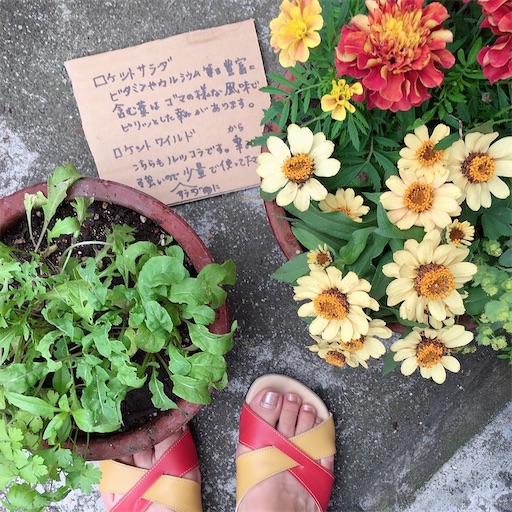 ロケットサラダ
ビタミンやカルシウム等豊富に
含む葉は ゴマの様な風味で
ピリッとした辛みがあります。
ロケットワイルド
こちらもルッコラです。辛みが
強いので少量で使って下さい